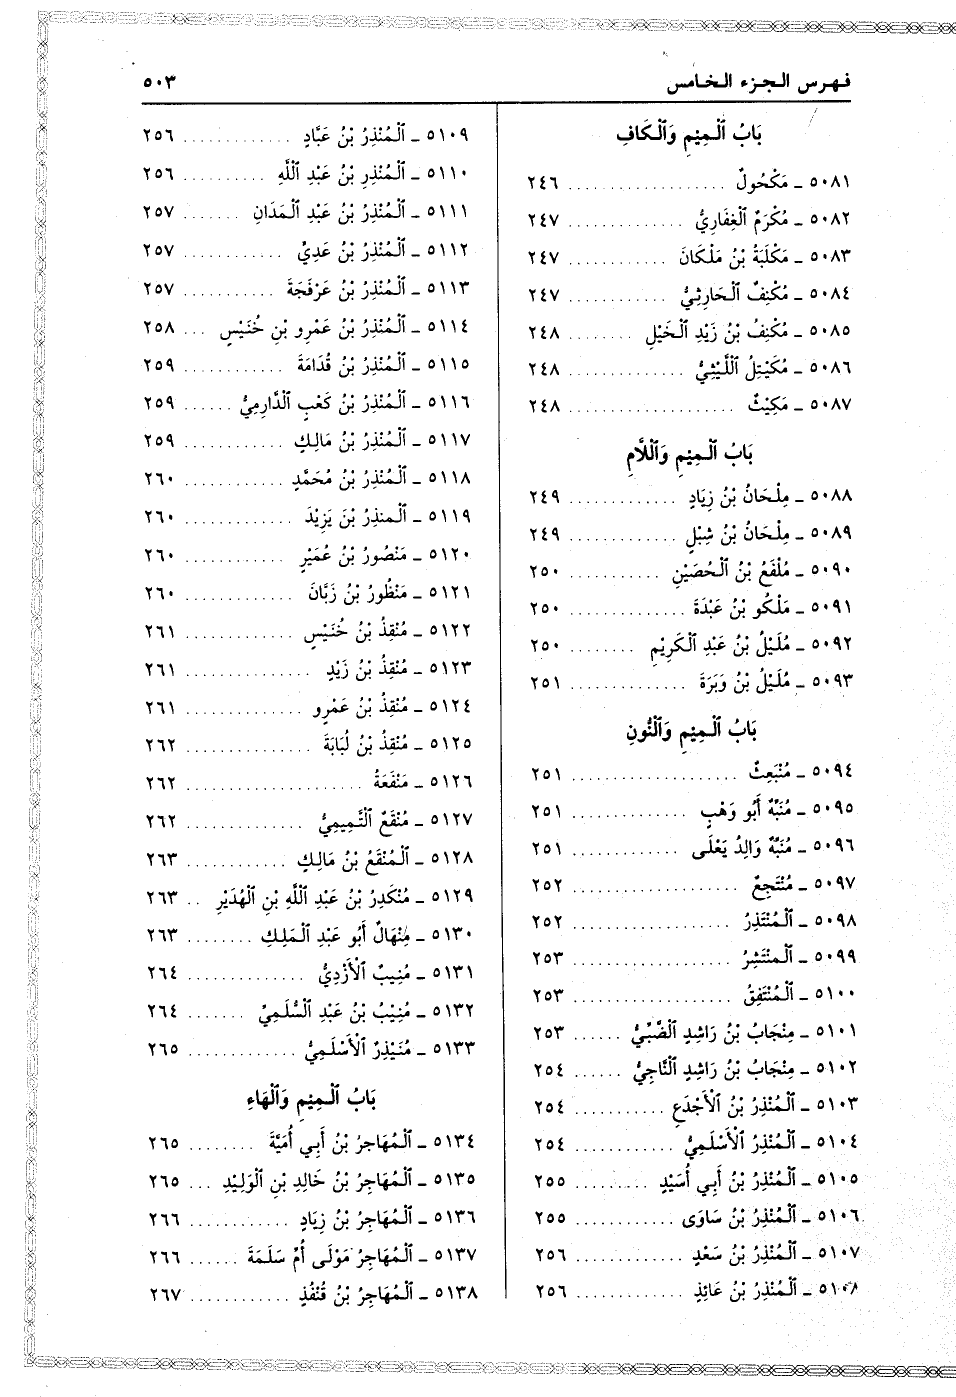 فهرس الجزء الخامس ٥٠٣
بَابُ ٱلْمِيْمِ وَٱلْكَافِ
٥٠٨١ ـ مَكْحُولٌ ........ ٢٤٦
٥٠٨٢ ـ مُكْرَمٌ ٱلْغِفَارِيُّ ........ ٢٤٧
٥٠٨٣ ـ مَكْلَبَةُ بْنُ مَلْكَانَ ........ ٢٤٧
٥٠٨٤ ـ مُكْنِفٌ ٱلْحَارِثِيُّ ........ ٢٤٧
٥٠٨٥ ـ مُكْنِفُ بْنُ زَيْدِ ٱلْخَيْلِ ........ ٢٤٨
٥٠٨٦ ـ مُكَيْتِلُ ٱللَّيْثِيُّ ........ ٢٤٨
٥٠٨٧ ـ مَكِيْثٌ ........ ٢٤٨
بَابُ ٱلْمِيْمِ وَٱللَّامِ
٥٠٨٨ ـ مِلْحَانُ بْنُ زِيَادٍ ........ ٢٤٩
٥٠٨٩ ـ مِلْحَانُ بْنُ شِبْلٍ ........ ٢٤٩
٥٠٩٠ ـ مُلْفَعُ بْنُ ٱلْحُصَيْنِ ........ ٢٥٠
٥٠٩١ ـ مَلْكُو بْنُ عَبْدَةَ ........ ٢٥٠
٥٠٩٢ ـ مُلَيْلُ بْنُ عَبْدِ ٱلْكَرِيْمِ ........ ٢٥٠
٥٠٩٣ ـ مُلَيْلُ بْنُ وَبَرَةَ ........ ٢٥١
بَابُ ٱلْمِيْمِ وَٱلْنُّونِ
٥٠٩٤ ـ مُنْبَعِثٌ ........ ٢٥١
٥٠٩٥ ـ مُنَبِّهٌ أَبُو وَهْبٍ ........ ٢٥١
٥٠٩٦ ـ مُنَبِّهٌ وَالِدُ يَعْلَى ........ ٢٥١
٥٠٩٧ ـ مُنْتَجِعٌ ........ ٢٥٢
٥٠٩٨ ـ ٱلْمُنْتَذِرُ ........ ٢٥٢
٥٠٩٩ ـ ٱلْمنْتَشِرُ ........ ٢٥٣
٥١٠٠ ـ ٱلْمُنْتَفِقُ ........ ٢٥٣
٥١٠١ ـ مِنْجَابُ بْنُ رَاشِدٍ ٱلْضَّبِّيُّ ...... ٢٥٣
٥١٠٢ ـ مِنْجَابُ بْنُ رَاشِدٍ ٱلْنَّاجِيُّ ...... ٢٥٤
٥١٠٣ ـ ٱلْمُنْذِرُ بْنُ ٱلْأَجْدَعِ ........ ٢٥٤
٥١٠٤ ـ ٱلْمُنْذِرُ ٱلْأَسْلَمِيُّ ........ ٢٥٤
٥١٠٥ ـ ٱلْمُنْذِرُ بْنُ أَبِي أُسَيْدٍ ........ ٢٥٥
٥١٠٦ ـ ٱلْمُنْذِرُ بْنُ سَاوَى ........ ٢٥٥
٥١٠٧ ـ ٱلْمُنْذِرُ بْنُ سَعْدٍ ........ ٢٥٦
٥١٠٨ ـ ٱلْمُنْذِرُ بْنُ عَائِذٍ ........ ٢٥٦
٥١٠٩ ـ ٱلْمُنْذِرُ بْنُ عَبَّادٍ ........ ٢٥٦
٥١١٠ ـ ٱلْمُنْذِرِ بْنُ عَبْدِ ٱللَّهِ ........ ٢٥٦
٥١١١ ـ ٱلْمُنْذِرُ بْنُ عَبْدِ ٱلْمَدَانِ ....... ٢٥٧
٥١١٢ ـ ٱلْمُنْذِرُ بْنُ عَدِيٍّ ........ ٢٥٧
٥١١٣ ـ ٱلْمُنْذِرُ بْنُ عَرْفَجَةَ ........ ٢٥٧
٥١١٤ ـ ٱلْمُنْذِرُ بْنُ عَمْرِو بْنِ خُنَيْسٍ ... ٢٥٨
٥١١٥ ـ ٱلْمُنْذِرُ بْنُ قُدَامَةَ ........ ٢٥٩
٥١١٦ ـ ٱلْمُنْذِرُ بْنُ كَعْبٍ ٱلْدَّارِمِيُّ ...... ٢٥٩
٥١١٧ ـ ٱلْمُنْذِرُ بْنُ مَالِكٍ ........ ٢٥٩
٥١١٨ ـ ٱلْمُنْذِرُ بْنُ مُحَمَّدٍ ........ ٢٦٠
٥١١٩ ـ ٱلْمنذِرُ بْنَ يَزِيْدَ ........ ٢٦٠
٥١٢٠ ـ مَنْصُورُ بْنُ عُمَيْرٍ ........ ٢٦٠
٥١٢١ ـ مَنْظُورُ بْنُ زَبَّانَ ........ ٢٦٠
٥١٢٢ ـ مُنْقِذُ بْنُ خُنَيْسٍ ........ ٢٦١
٥١٢٣ ـ مُنْقِذُ بْنُ زَيْدٍ ........ ٢٦١
٥١٢٤ ـ مُنْقِذُ بْنُ عَمْرٍو ........ ٢٦١
٥١٢٥ ـ مُنْقِذُ بْنُ لُبَابَةَ ........ ٢٦٢
٥١٢٦ ـ مَنْفَعَةُ ........ ٢٦٢
٥١٢٧ ـ مُنْقَعٌ ٱلْتَّمِيمِيُّ ........ ٢٦٢
٥١٢٨ ـ ٱلْمُنْقَعُ بْنُ مَالِكٍ ........ ٢٦٣
٥١٢٩ ـ مُنْكَدِرُ بْنُ عَبْدِ ٱللَّهِ بْنِ ٱلْهُدَيْرِ .. ٢٦٣
٥١٣٠ ـ مِنْهَالٌ أَبُو عَبْدِ ٱلْمَلِكِ ........ ٢٦٣
٥١٣١ ـ مُنِيبٌ ٱلْأَزْدِيُّ ........ ٢٦٤
٥١٣٢ ـ مُنِيْبُ بْنُ عَبْدٍ ٱلْسُّلَمِيُّ ....... ٢٦٤
٥١٣٣ ـ مُنَيْذِرٌ ٱلْأَسْلَمِيُّ ........ ٢٦٥
بَابُ ٱلْمِيْمِ وَٱلْهَاءِ
٥١٣٤ ـ ٱلْمُهَاجِرُ بْنُ أَبِي أُمَيَّةَ ........ ٢٦٥
٥١٣٥ ـ ٱلْمُهَاجِرُ بْنُ خَالِدِ بْنِ ٱلْوَلِيْدِ ... ٢٦٥
٥١٣٦ ـ ٱلْمُهَاجِرُ بْنُ زِيَادٍ ........ ٢٦٦
٥١٣٧ ـ ٱلْمُهَاجِرُ مَوْلَى أُمِّ سَلَمَةَ ...... ٢٦٦
٥١٣٨ ـ ٱلْمُهَاجِرُ بْنُ قُنْفُذٍ ........ ٢٦٧